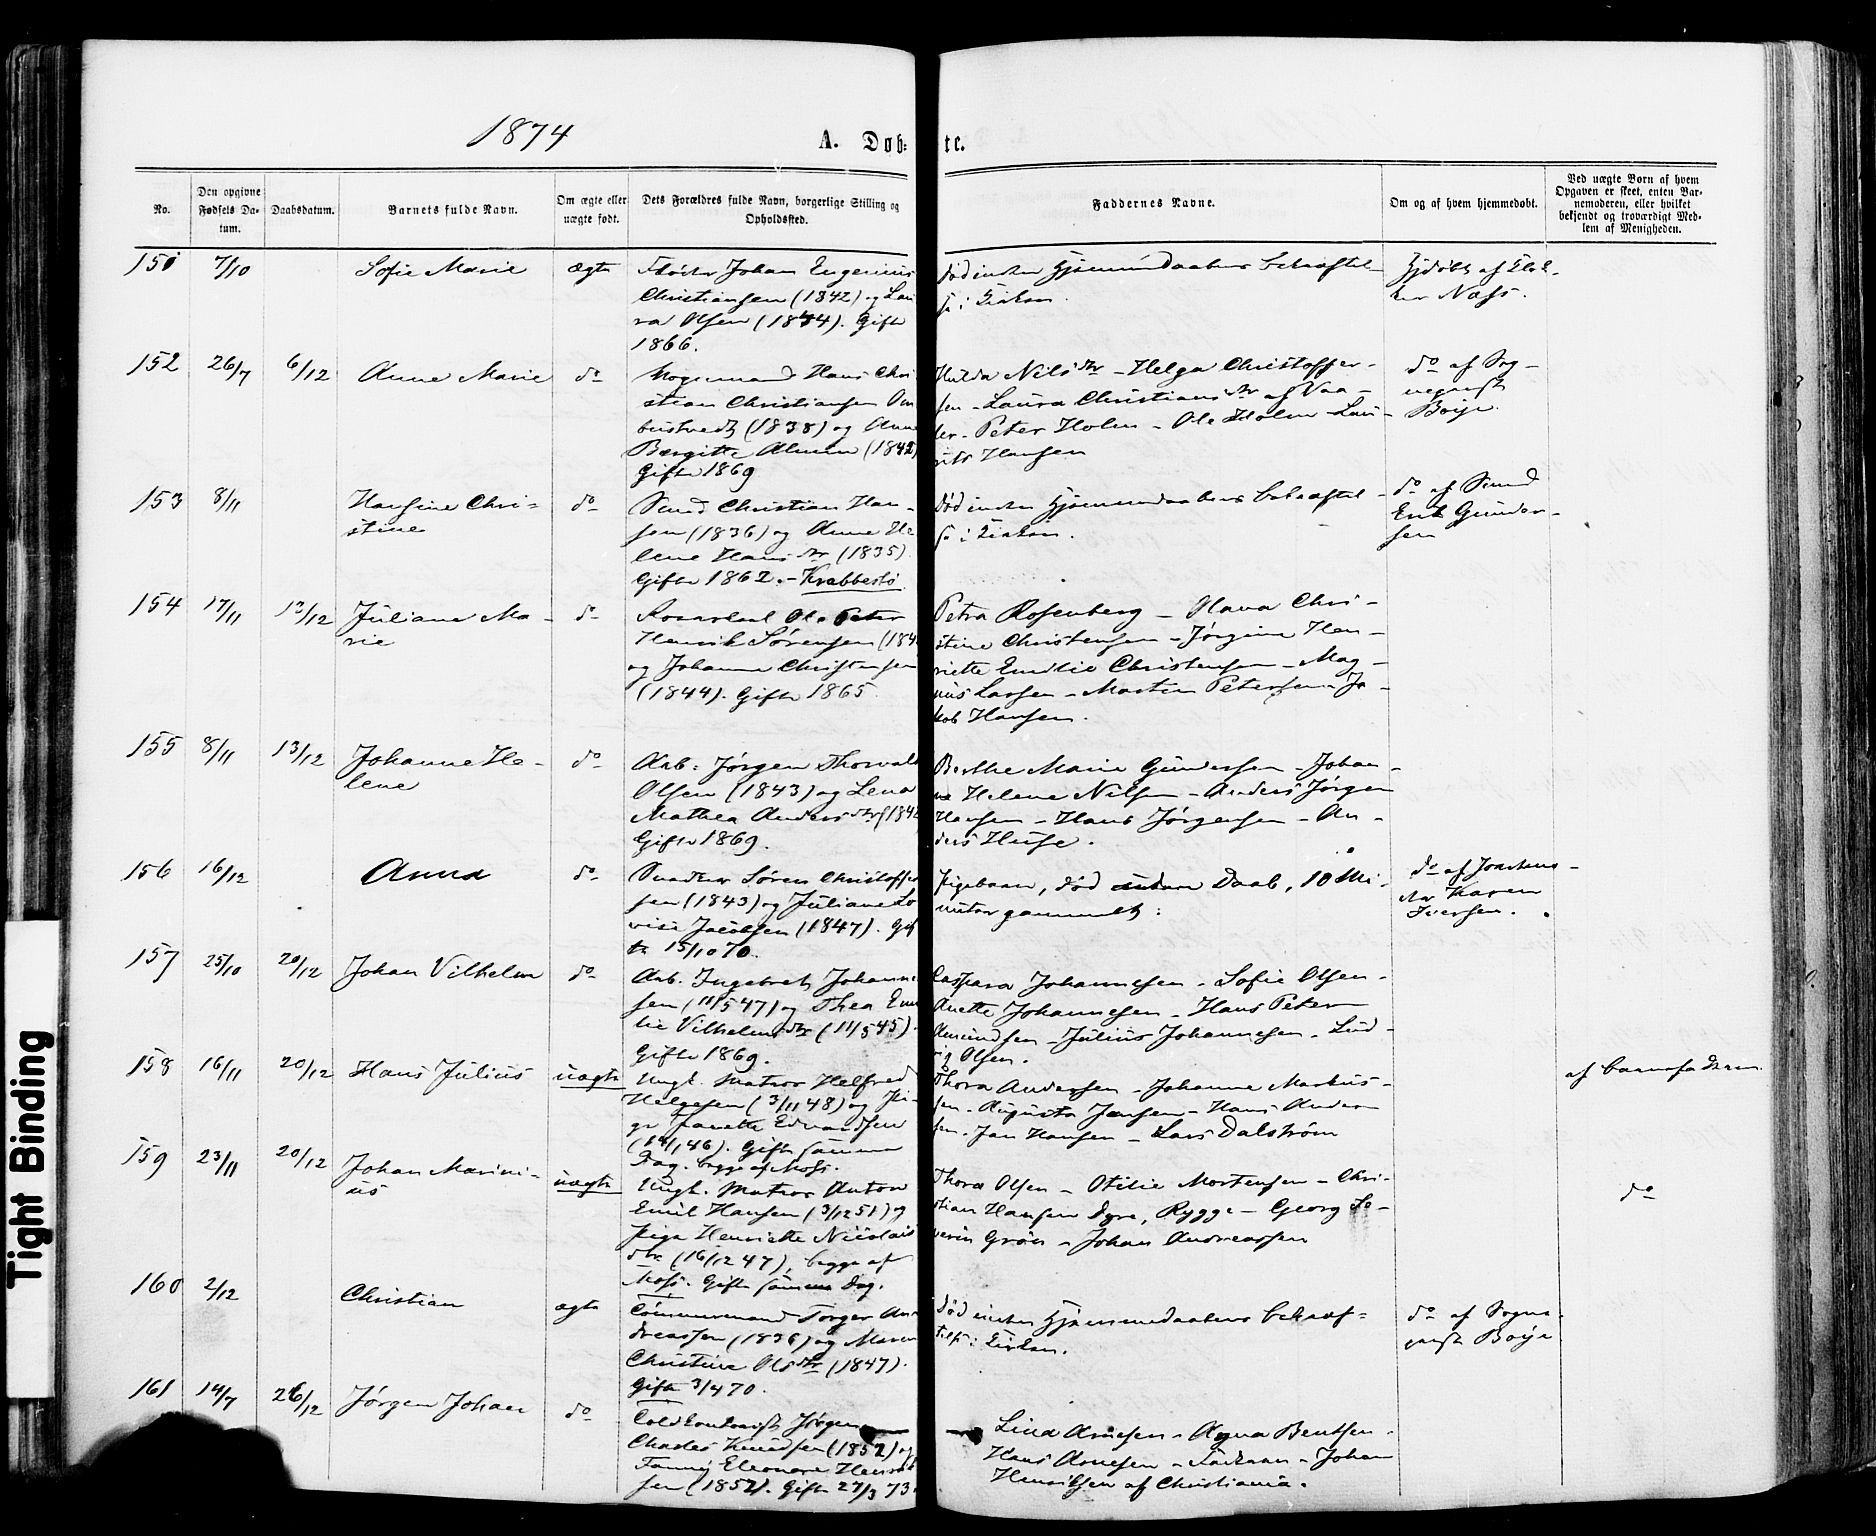 1874
A. Døb-
te.
No.
Den opgivne
Fødsels Da-
tum.
Daabsdatum.
Barnets fulde Navn.
Om ægte eller
uægte født.
Dets Forældres fulde Navn, borgerlige Stilling og
Opholdssted.
Faddernes Navne.
Om og af hvem hjemmedøbt.
Ved uægte Børn af hvem
Opgaven er skeet, enten Bar-
nemoderen, eller hvilket
bekjendt og troværdigt Med-
lem af Menigheden.
151 7/10 Sofie Marie ægte
Johan Eugenius
Christiansen (1842) og Lau
ra Olsen (1844). Gift
1866.
Død inden Hjemmedaabens bekræftel-
se i Kirken.
Hjdøbt af Klok-
ker Næss.
152 26/7 6/12 Anne Marie do
Hans Chri
stian Christiansen
(1838) og Anne
Bergitte (1842)
Gift 1869
Hulda Nilsdtr - Helga Christoffer-
sen - Laura Christiansdtr af Vaa-
ler - Peter Holm - Ole Holm - Lau-
rits Hansen
do af Sog-
neprest
Boije.
153 8/11 Hansine Chri-
stine do
Christian Han-
sen (1836) og Anne He
lene Hansdtr (1835).
Gift 1862. - Krabbestø
Død inden Hjemmedaabens bekræftel-
se i Kirken.
do af
Erik Gunder-
sen
154 17/11 13/12 Juliane Ma-
rie do
Ole Peter
Henrik Sørensen (184
og Johanne Christensen
(1844). Gift 1865.
Petra Rosenberg - Hava Chri-
stine Christensen - Jørgine Hen-
riette Emilie Christensen - Mag-
nus Larsen - Martin Petersen - Ja-
kob Hansen.
155 8/11 13/12 Johanne He-
lene do
Arb: Jørgen Thorvald
Olsen (1843) og Lena
Mathea Andersdtr (184
Gift 1869.
Berthe Marie Gundersen - Johan-
ne Helene Nilsen - Anders Jørgen
Hansen - Hans Jørgensen - An-
ders Huse.
156 16/12 Anna do
Snedker Søren Christoffer
sen (1843) og Juliane Lo
vise Jacobsen (1847). Gif
te 15/10 70.
Pigebarn, død uden Daab, 10 Mi-
nuter gammelt.
do af Jordemo-
der Karen
Iversen.
157 25/10 20/12 Johan Vilhelm do
Arb. Ingebret Johanne
sen (11/5 47) og Thea Emi
lie Vilhelmsdtr (11/5 45).
Gift 1869.
Caspara Johannesen - Sofie Olsen -
Anette Johannesen - Hans Peter
Amundsen - Julius Johannesen - Lud-
vig Olsen.
158 16/11 20/12 Hans Julius uægte
Ungk. Matros Helfred
Helgesen (3/11 48) og Pi-
ge Edvardsen
(14/1 46). Gift samme
Dag. begge af Moss.
Thora Andersen - Johanne Markus-
sen - Augusta Jensen - Hans Ander-
sen - Jan Hansen - Lars Dalstrøm
af barnefaderen
159 23/11 20/12 Johan Marini-
us uægte
Ungk. Matros Anton
Emil Hansen (3/12 51) og
Pige Henriette Nicolais
dtr (16/12 47), begge af
Moss. Gift samme Dag.
Thora Olsen - Otilie Mortensen - Chri-
stian Hansen Dyre, Rygge - Georg Se-
verin Grøn - Johan Andreassen
do
160 2/12 Christian ægte
Tømmermand Torger An
dreassen (1836) og Maren
Christine Olsdtr (1847).
Gift 3/4 70.
Død inden Hjemmedaabens bekræf-
telse i Kirken.
do af Sogne-
prest Boije
161 14/7 26/12 Jørgen Johan do
Toldkontorist Jørgen
Charles Knudsen (1852) og
Fanny Eleonore Henrik
sen (1852). Gift 27/3 73.
Lina Arnesen - Agna Bentsen -
Hans Arnesen - - Johan
Henriksen af Christiania.
Tight Binding